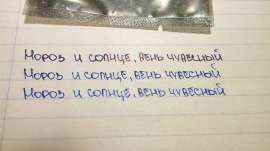 Мороз и солнце, день чудесный
Мороз и солнце, день чудесный
Мороз и солнце, день чудесный